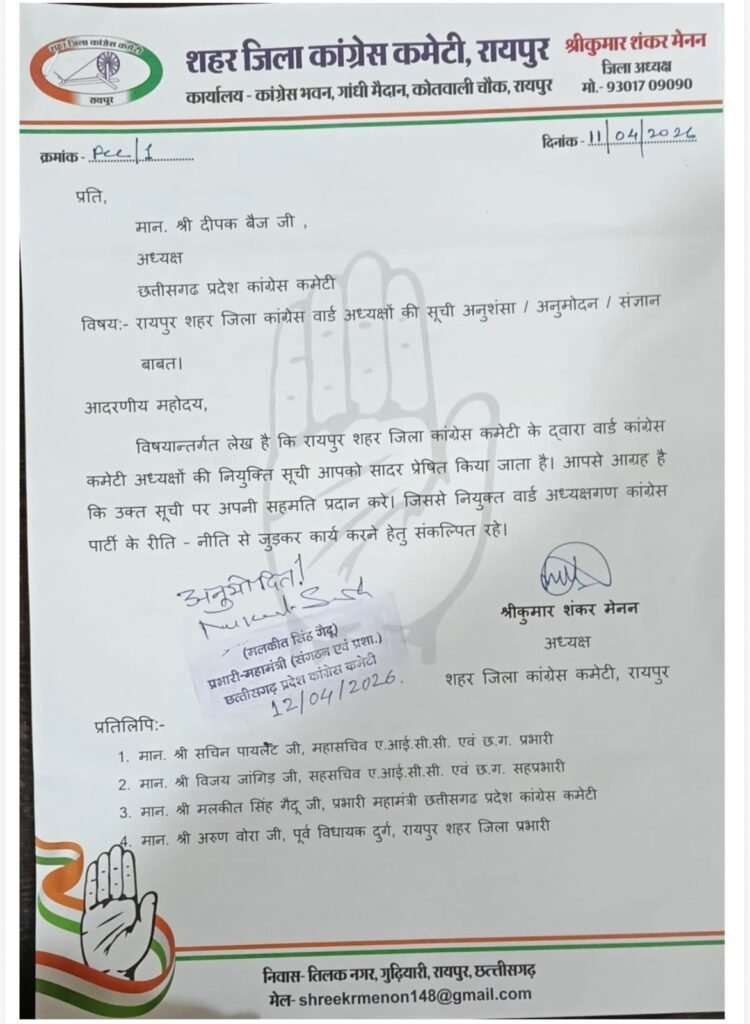 शहर जिला कांग्रेस कमेटी
रायपुर
शहर जिला कांग्रेस कमेटी, रायपुर
कार्यालय - कांग्रेस भवन, गांधी मैदान, कोतवाली चौक, रायपुर
श्रीकुमार शंकर मेनन
जिला अध्यक्ष
मो.- 93017 09090
क्रमांक - Pcc/1
दिनांक - 11/04/2026
प्रति,
मान. श्री दीपक बैज जी ,
अध्यक्ष
छत्तीसगढ प्रदेश कांग्रेस कमेटी
विषय:- रायपुर शहर जिला कांग्रेस वार्ड अध्यक्षों की सूची अनुशंसा / अनुमोदन / संज्ञान
बाबत।
आदरणीय महोदय,
विषयान्तर्गत लेख है कि रायपुर शहर जिला कांग्रेस कमेटी के द्वारा वार्ड कांग्रेस
कमेटी अध्यक्षों की नियुक्ति सूची आपको सादर प्रेषित किया जाता है। आपसे आग्रह है
कि उक्त सूची पर अपनी सहमति प्रदान करे। जिससे नियुक्त वार्ड अध्यक्षगण कांग्रेस
पार्टी के रीति - नीति से जुड़कर कार्य करने हेतु संकल्पित रहे।
अनुमोदित!
(मलकीत सिंह गैदू)
प्रभारी-महामंत्री (संगठन एवं प्रशा.)
छत्तीसगढ़ प्रदेश कांग्रेस कमेटी
12/04/2026.
श्रीकुमार शंकर मेनन
अध्यक्ष
शहर जिला कांग्रेस कमेटी, रायपुर
प्रतिलिपि:-
1. मान. श्री सचिन पायलेट जी, महासचिव ए.आई.सी.सी. एवं छ.ग. प्रभारी
2. मान. श्री विजय जांगिड़ जी, सहसचिव ए.आई.सी.सी. एवं छ.ग. सहप्रभारी
3. मान. श्री मलकीत सिंह गैदू जी, प्रभारी महामंत्री छत्तीसगढ प्रदेश कांग्रेस कमेटी
4. मान. श्री अरुण वोरा जी, पूर्व विधायक दुर्ग, रायपुर शहर जिला प्रभारी
निवास- तिलक नगर, गुढ़ियारी, रायपुर, छत्तीसगढ़
मेल- shreekrmenon148@gmail.com